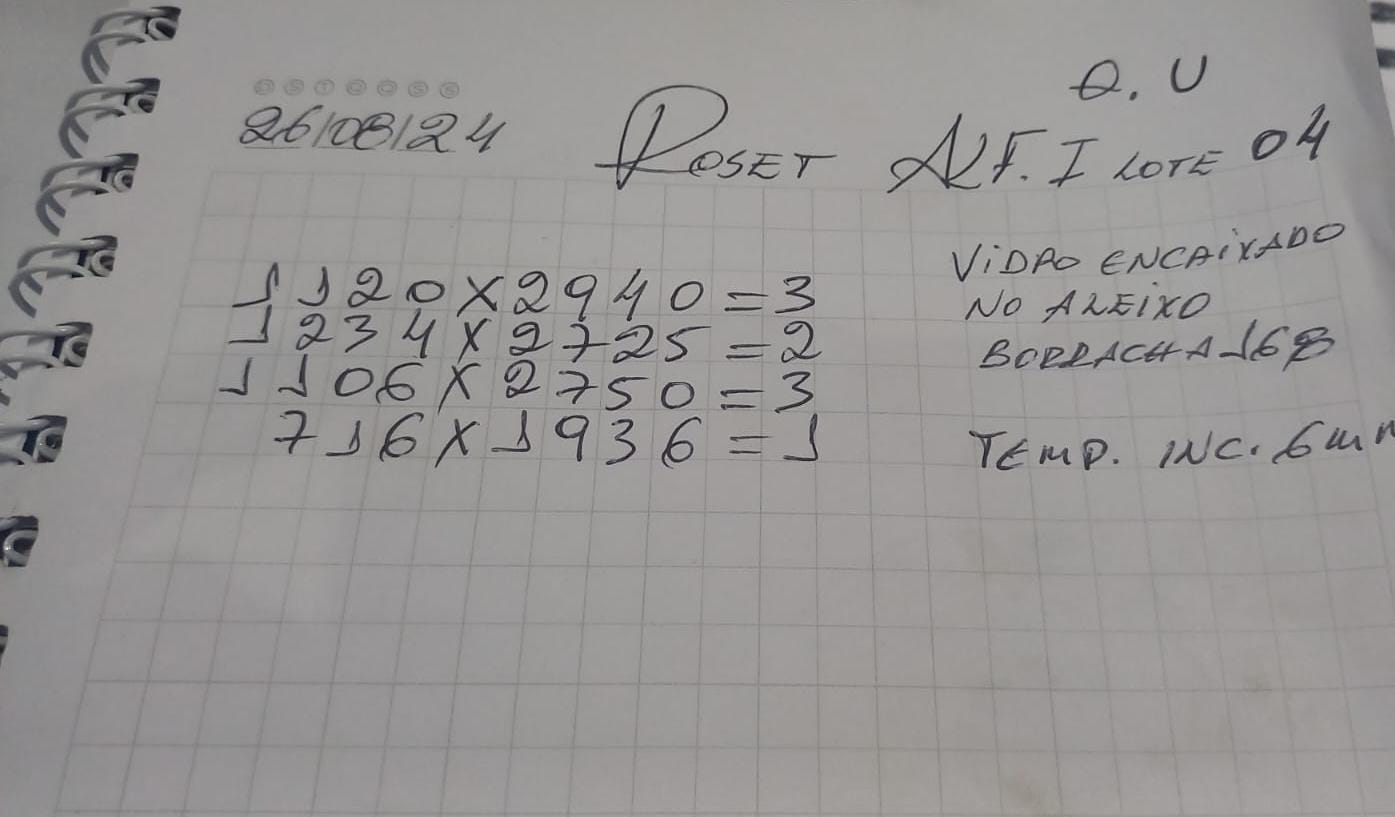 Q. U
D S T Q Q S S
26/08/24 ROSET ALF. I LOTE 04
1120X2940=3
1234X2725=2
1106X2750=3
716X1936=1
VIDRO ENCAIXADO
NO ALEIXO
BORRACHA 168
TEMP. INC. 6mm